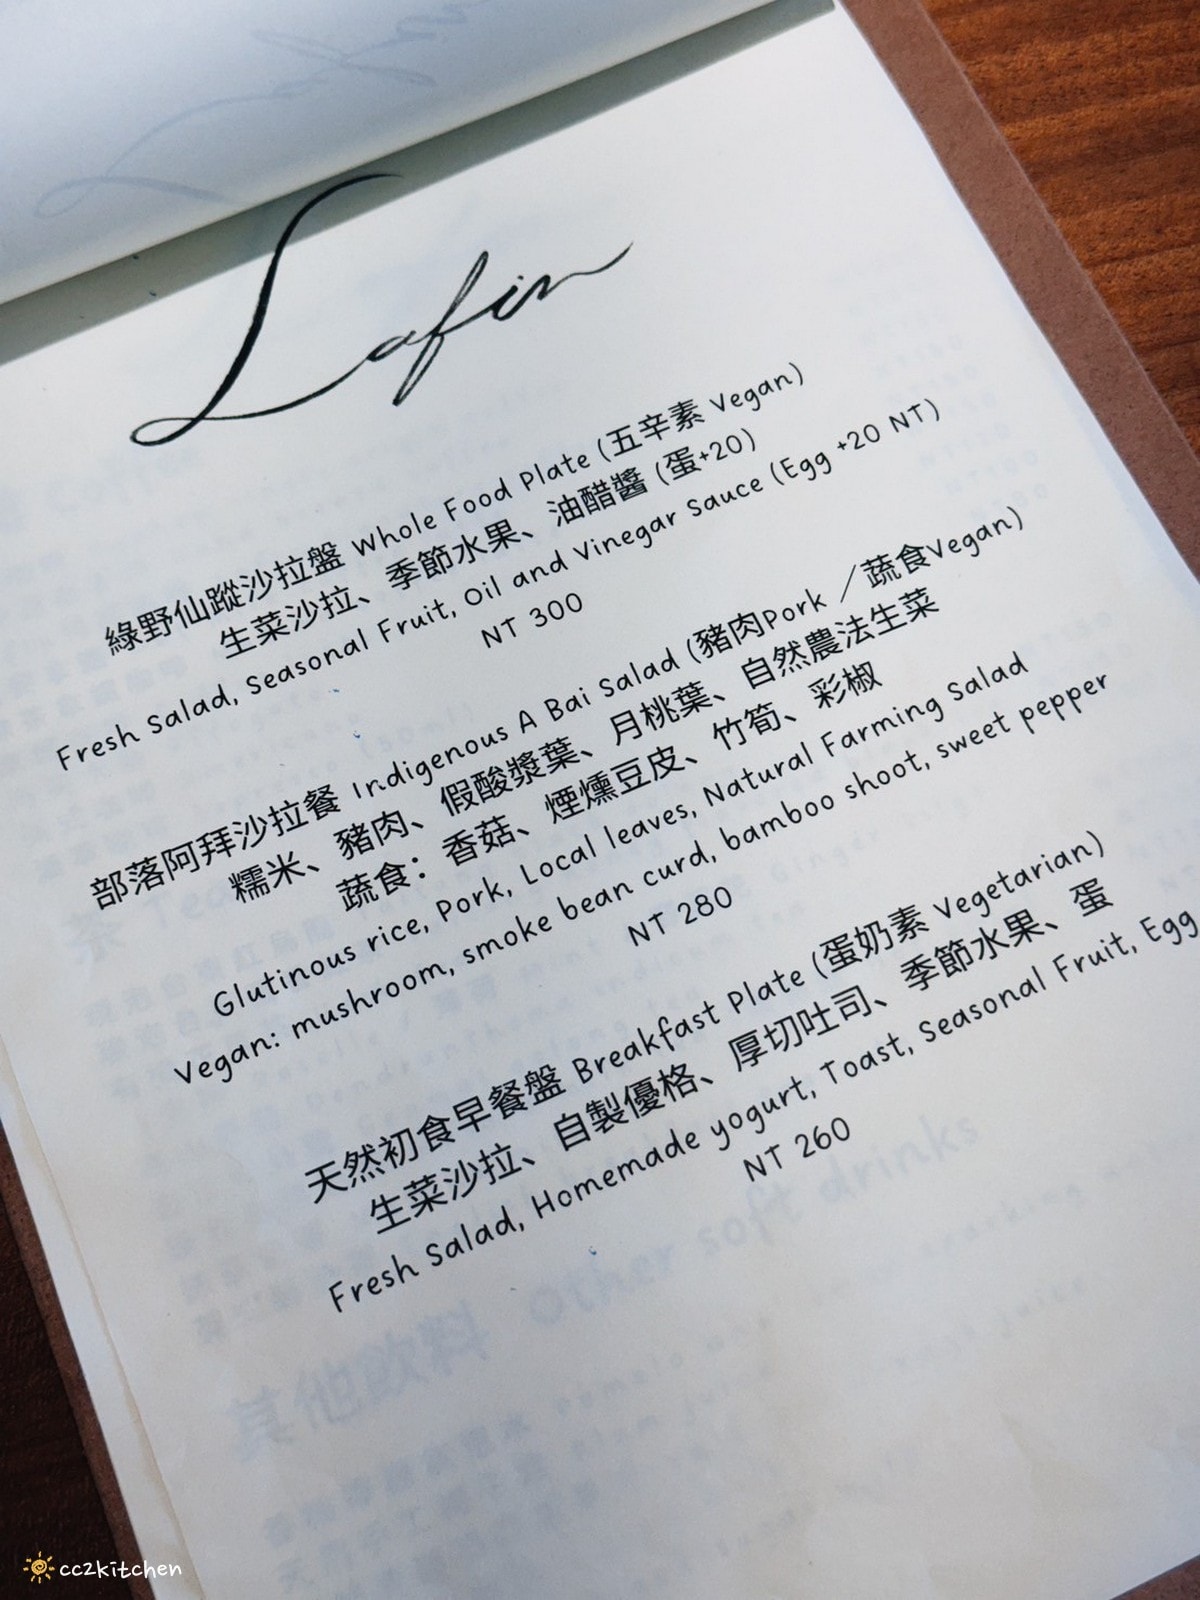 Lafin
綠野仙蹤沙拉盤 Whole Food Plate (五辛素 Vegan)
生菜沙拉、季節水果、油醋醬 (蛋+20)
Fresh Salad, Seasonal Fruit, Oil and Vinegar Sauce (Egg +20 NT)
NT 300
部落阿拜沙拉餐 Indigenous A Bai Salad (豬肉Pork ／蔬食Vegan)
糯米、豬肉、假酸漿葉、月桃葉、自然農法生菜
蔬食：香菇、煙燻豆皮、竹筍、彩椒
Glutinous rice, Pork, Local leaves, Natural Farming Salad
Vegan: mushroom, smoke bean curd, bamboo shoot, sweet pepper
NT 280
天然初食早餐盤 Breakfast Plate (蛋奶素 Vegetarian)
生菜沙拉、自製優格、厚切吐司、季節水果、蛋
Fresh Salad, Homemade yogurt, Toast, Seasonal Fruit, Egg
NT 260
其他飲料 other soft drinks
cc2kitchen